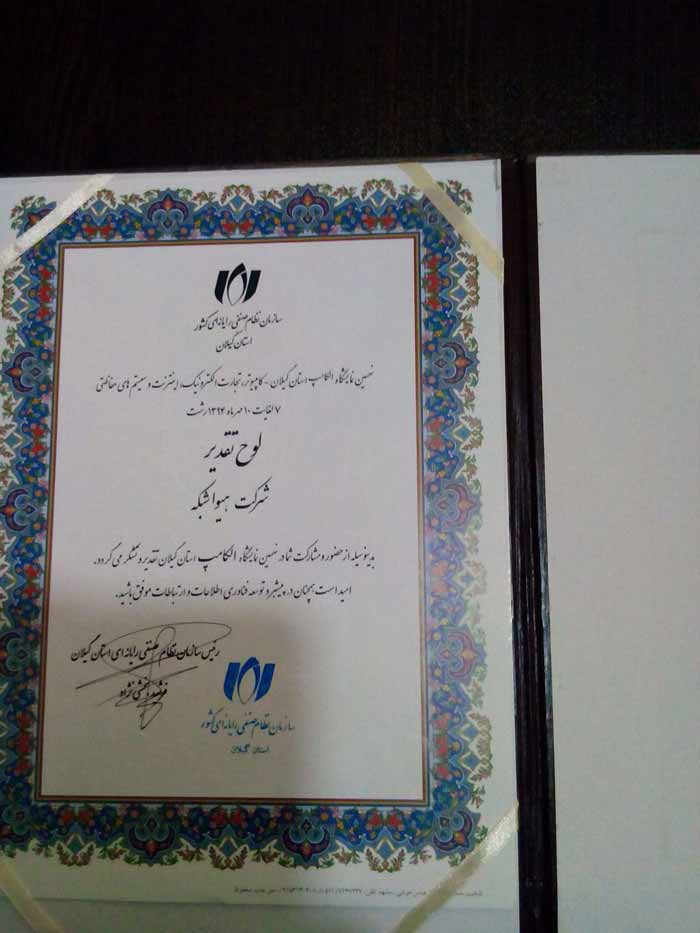 سازمان نظام صنفی رایانه‌ای کشور
استان گیلان
نهمین نمایشگاه الکامپ استان گیلان - کامپیوتر، تجارت الکترونیک، اینترنت و سیستم های حفاظتی
۷ لغایت ۱۰ مهر ماه ۱۳۹۴ رشت
لوح تقدیر
شرکت هیوا شبکه
بدینوسیله از حضور و مشارکت شما در نهمین نمایشگاه الکامپ استان گیلان تقدیر و تشکر می گردد.
امید است همچنان در پیشبرد و توسعه فناوری اطلاعات و ارتباطات موفق باشید.
رئیس سازمان نظام صنفی رایانه ای استان گیلان
سازمان نظام صنفی رایانه‌ای کشور
استان گیلان